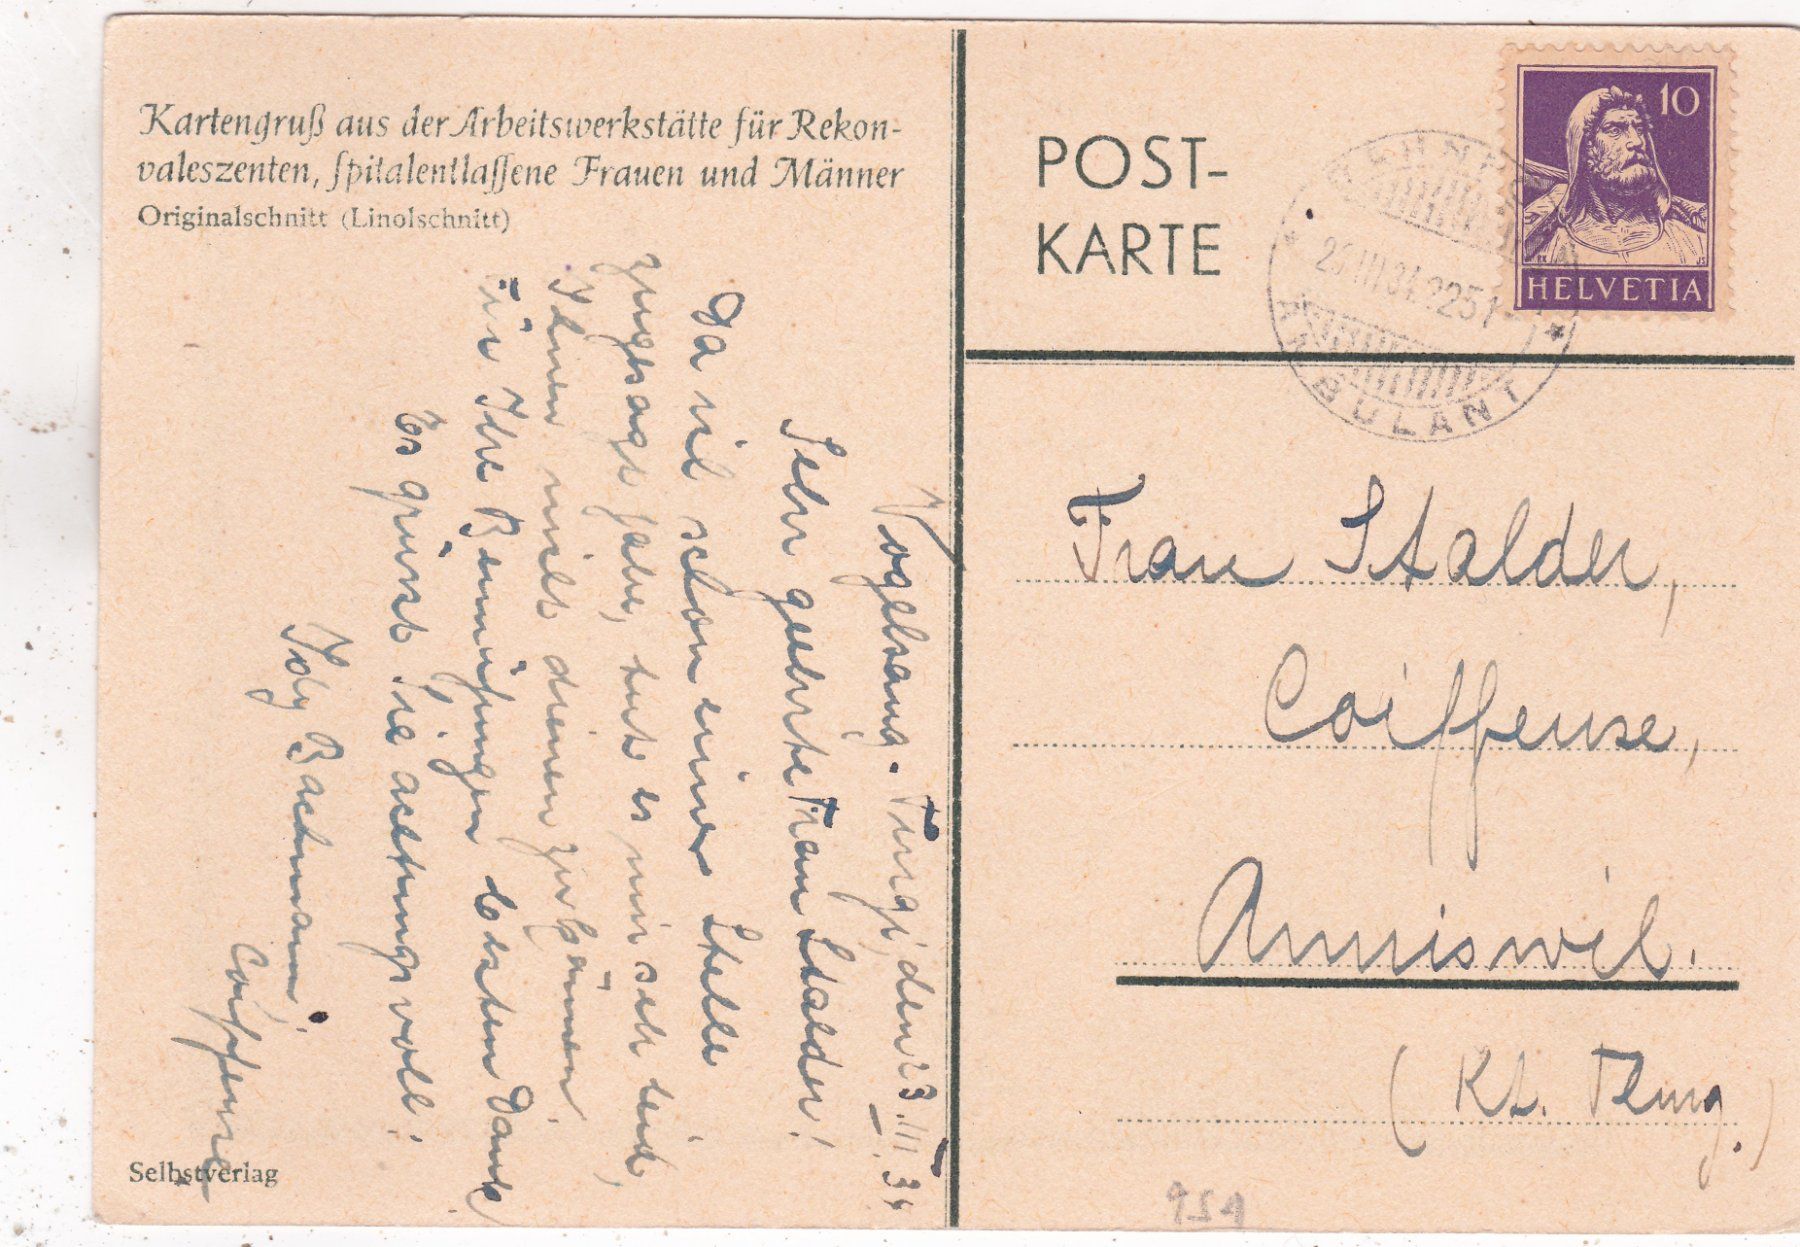 Kartengruß aus der Arbeitswerkstätte für Rekon-
valeszenten, spitalentlassene Frauen und Männer
Originalschnitt (Linolschnitt)
Vogelsang. Turgi, den 23.III.34
Sehr geehrte Frau Stalder!
Da ich schon einer Stelle
zugesagt habe, tut es mir seh leid,
Ihnen nicht dienen zu können.
für Ihre Bemühungen besten Dank
Es grüsst Sie achtungsvoll!
Bachmann,
Coiffeuse
Selbstverlag
POST-
KARTE
10
HELVETIA
III 34 22
AMBULANT
Frau Stalder,
Coiffeuse,
Amriswil.
(Kt. Thurg.)
951